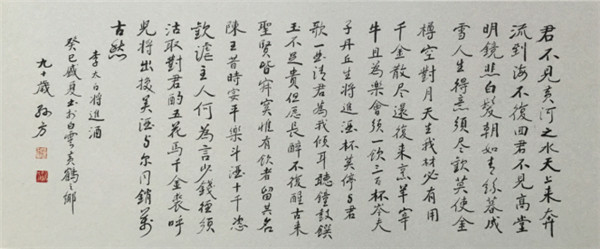 君不見黃河之水天上来奔
流到海不復回君不見高堂
明鏡悲白髮朝如青絲暮成
雪人生得意須盡歡莫使金
樽空對月天生我材必有用
千金散盡還復来烹羊宰
牛且為樂會須一飲三百杯岑夫
子丹丘生將進酒杯莫停与君
歌一曲請君為我傾耳聽鐘鼓饌
玉不足貴但愿長醉不復醒古来
聖賢皆寂寞惟有飲者留其名
陳王昔時宴平樂斗酒十千恣
歡謔主人何為言少錢徑須
沽取對君酌五花馬千金裘呼
兒將出換美酒与尔同銷萬
古愁
李太白將進酒
癸巳盛夏書於白雲黃鶴之鄉
九十歲孙方